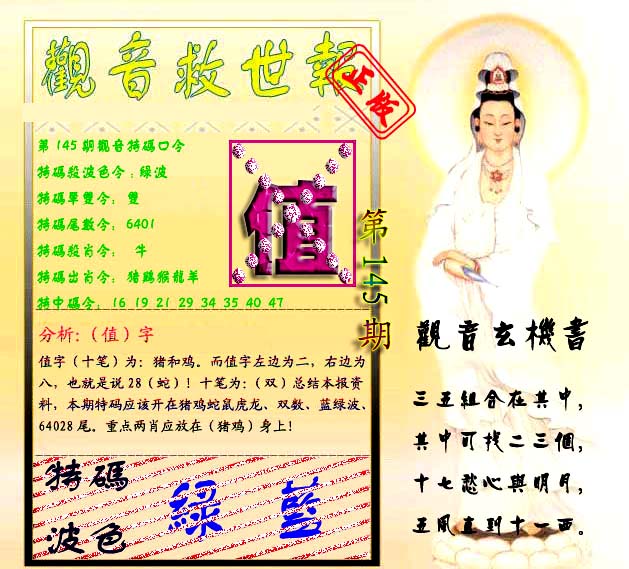 觀音救世報
正版
第145期觀音特碼口令
特碼殺波色令:綠波
特碼單雙令: 雙
特碼尾數令: 6401
特碼殺肖令: 牛
特碼出肖令: 猪鷄猴龍羊
特中碼令: 16 19 21 29 34 35 40 47
值
第145期
分析:(值)字
值字(十笔)为:猪和鸡。而值字左边为二,右边为
八,也就是说28(蛇)!十笔为:(双)总结本报资
料,本期特码应该开在猪鸡蛇鼠虎龙、双数、蓝绿波、
64028尾。重点两肖应放在(猪鸡)身上!
特碼
波色
綠 藍
觀音玄機書
三五組合在其中,
其中可找二三個,
十七愁心與明月,
五風直到十一西。